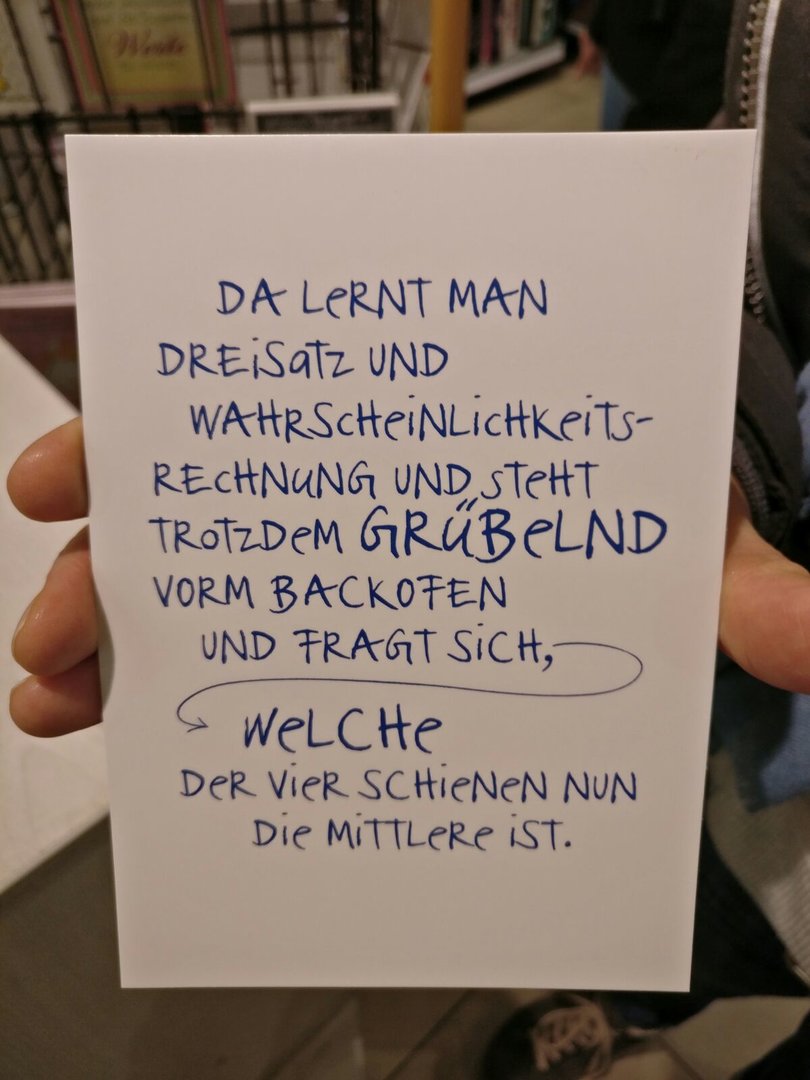 Werte
DA LeRNT MAN
DREiSatz UND
WAHRSCHeiNLiCHKeiTs-
RECHNUNG UND steHT
TROTZDeM GRÜBeLND
VORM BACKOFEN
UND FRAGT SiCH,
WeLCHe
DeR VieR SCHieNeN NUN
Die MiTTLeRe iST.